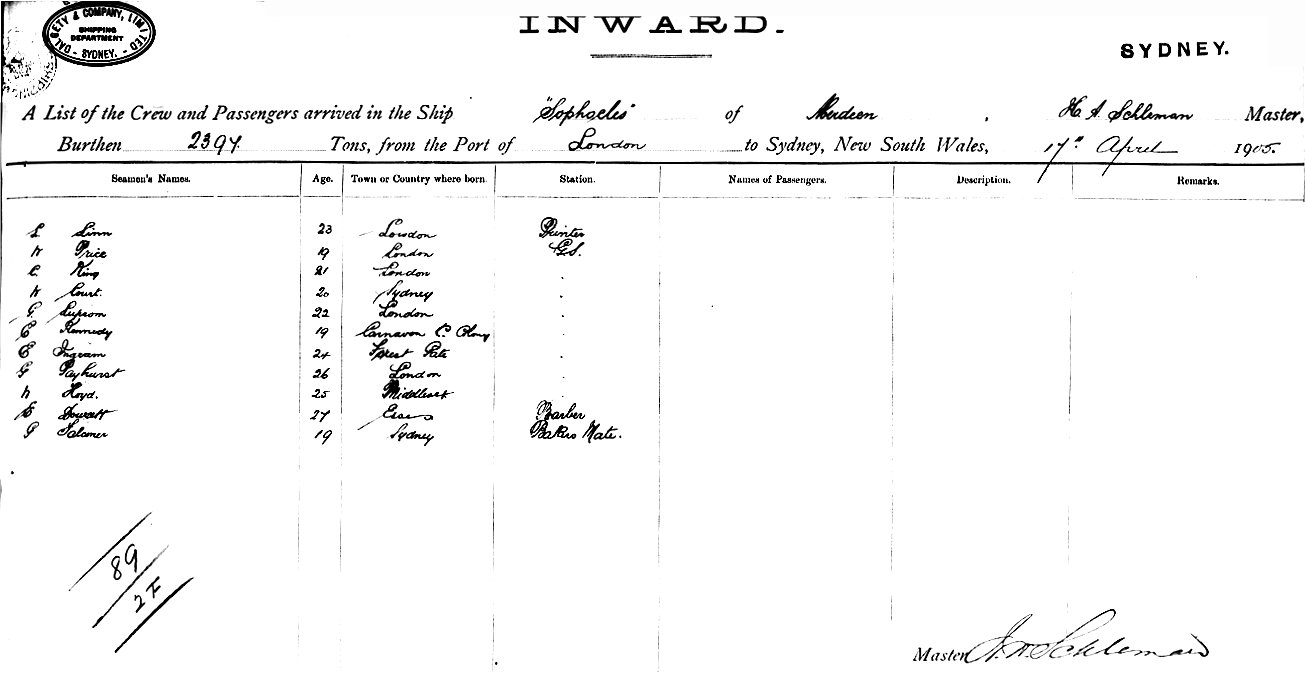 DALGETY & COMPANY, LIMITED
SHIPPING DEPARTMENT
- SYDNEY. -
INWARD.
SYDNEY.
A List of the Crew and Passengers arrived in the Ship "Sophocles" of Aberdeen, H A Schleman Master,
Burthen 2397 Tons, from the Port of London to Sydney, New South Wales, 17th April 1905
Seamen's Names. Age. Town or Country where born. Station. Names of Passengers. Description. Remarks.
Linn 23 London Printer
W Price 19 London G.S.
C. King 21 London "
W Court. 20 Sydney "
G. 22 London "
E Kennedy 19 Carnavon C. Colony "
E Ingram 24 Forest Gate "
G 26 London "
W Lloyd. 25 Middlesex
27 Essex Barber
G 19 Sydney Bakers Mate.
89
2 F
Master H. A. Schleman